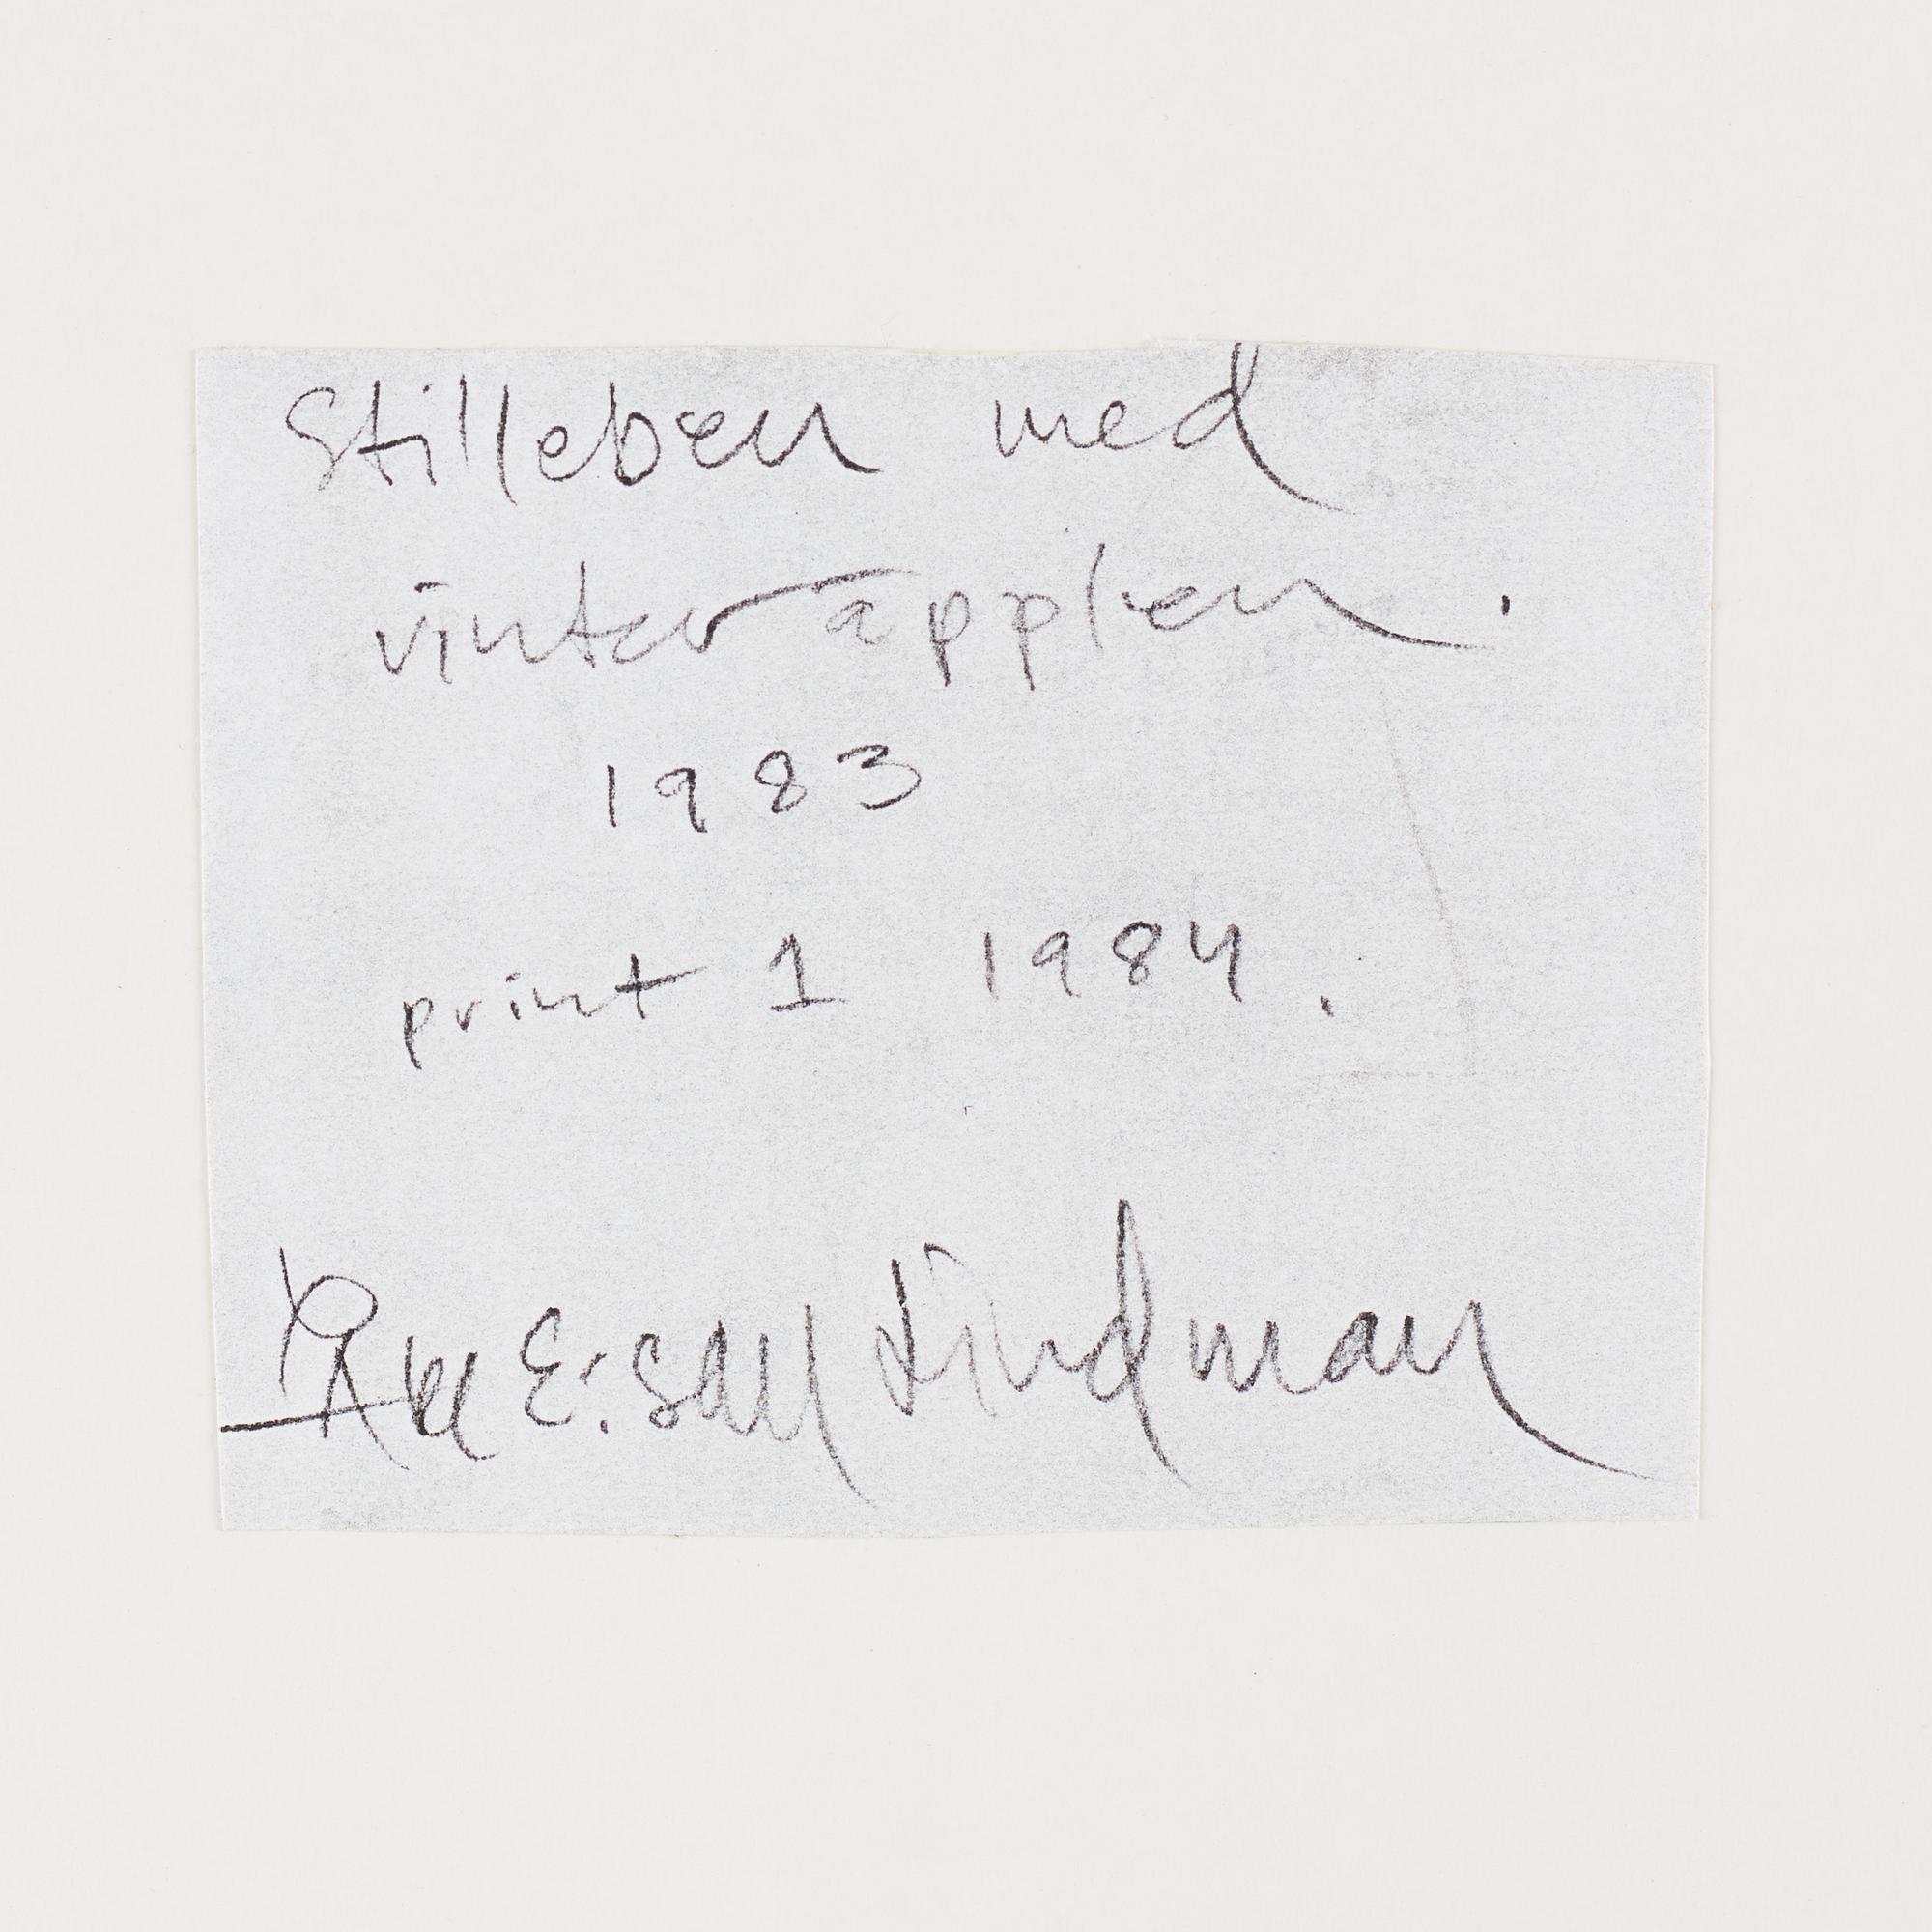 Stilleben med
vinteräpplen.
1983
print 1 1984.
Åke E:son Lindman